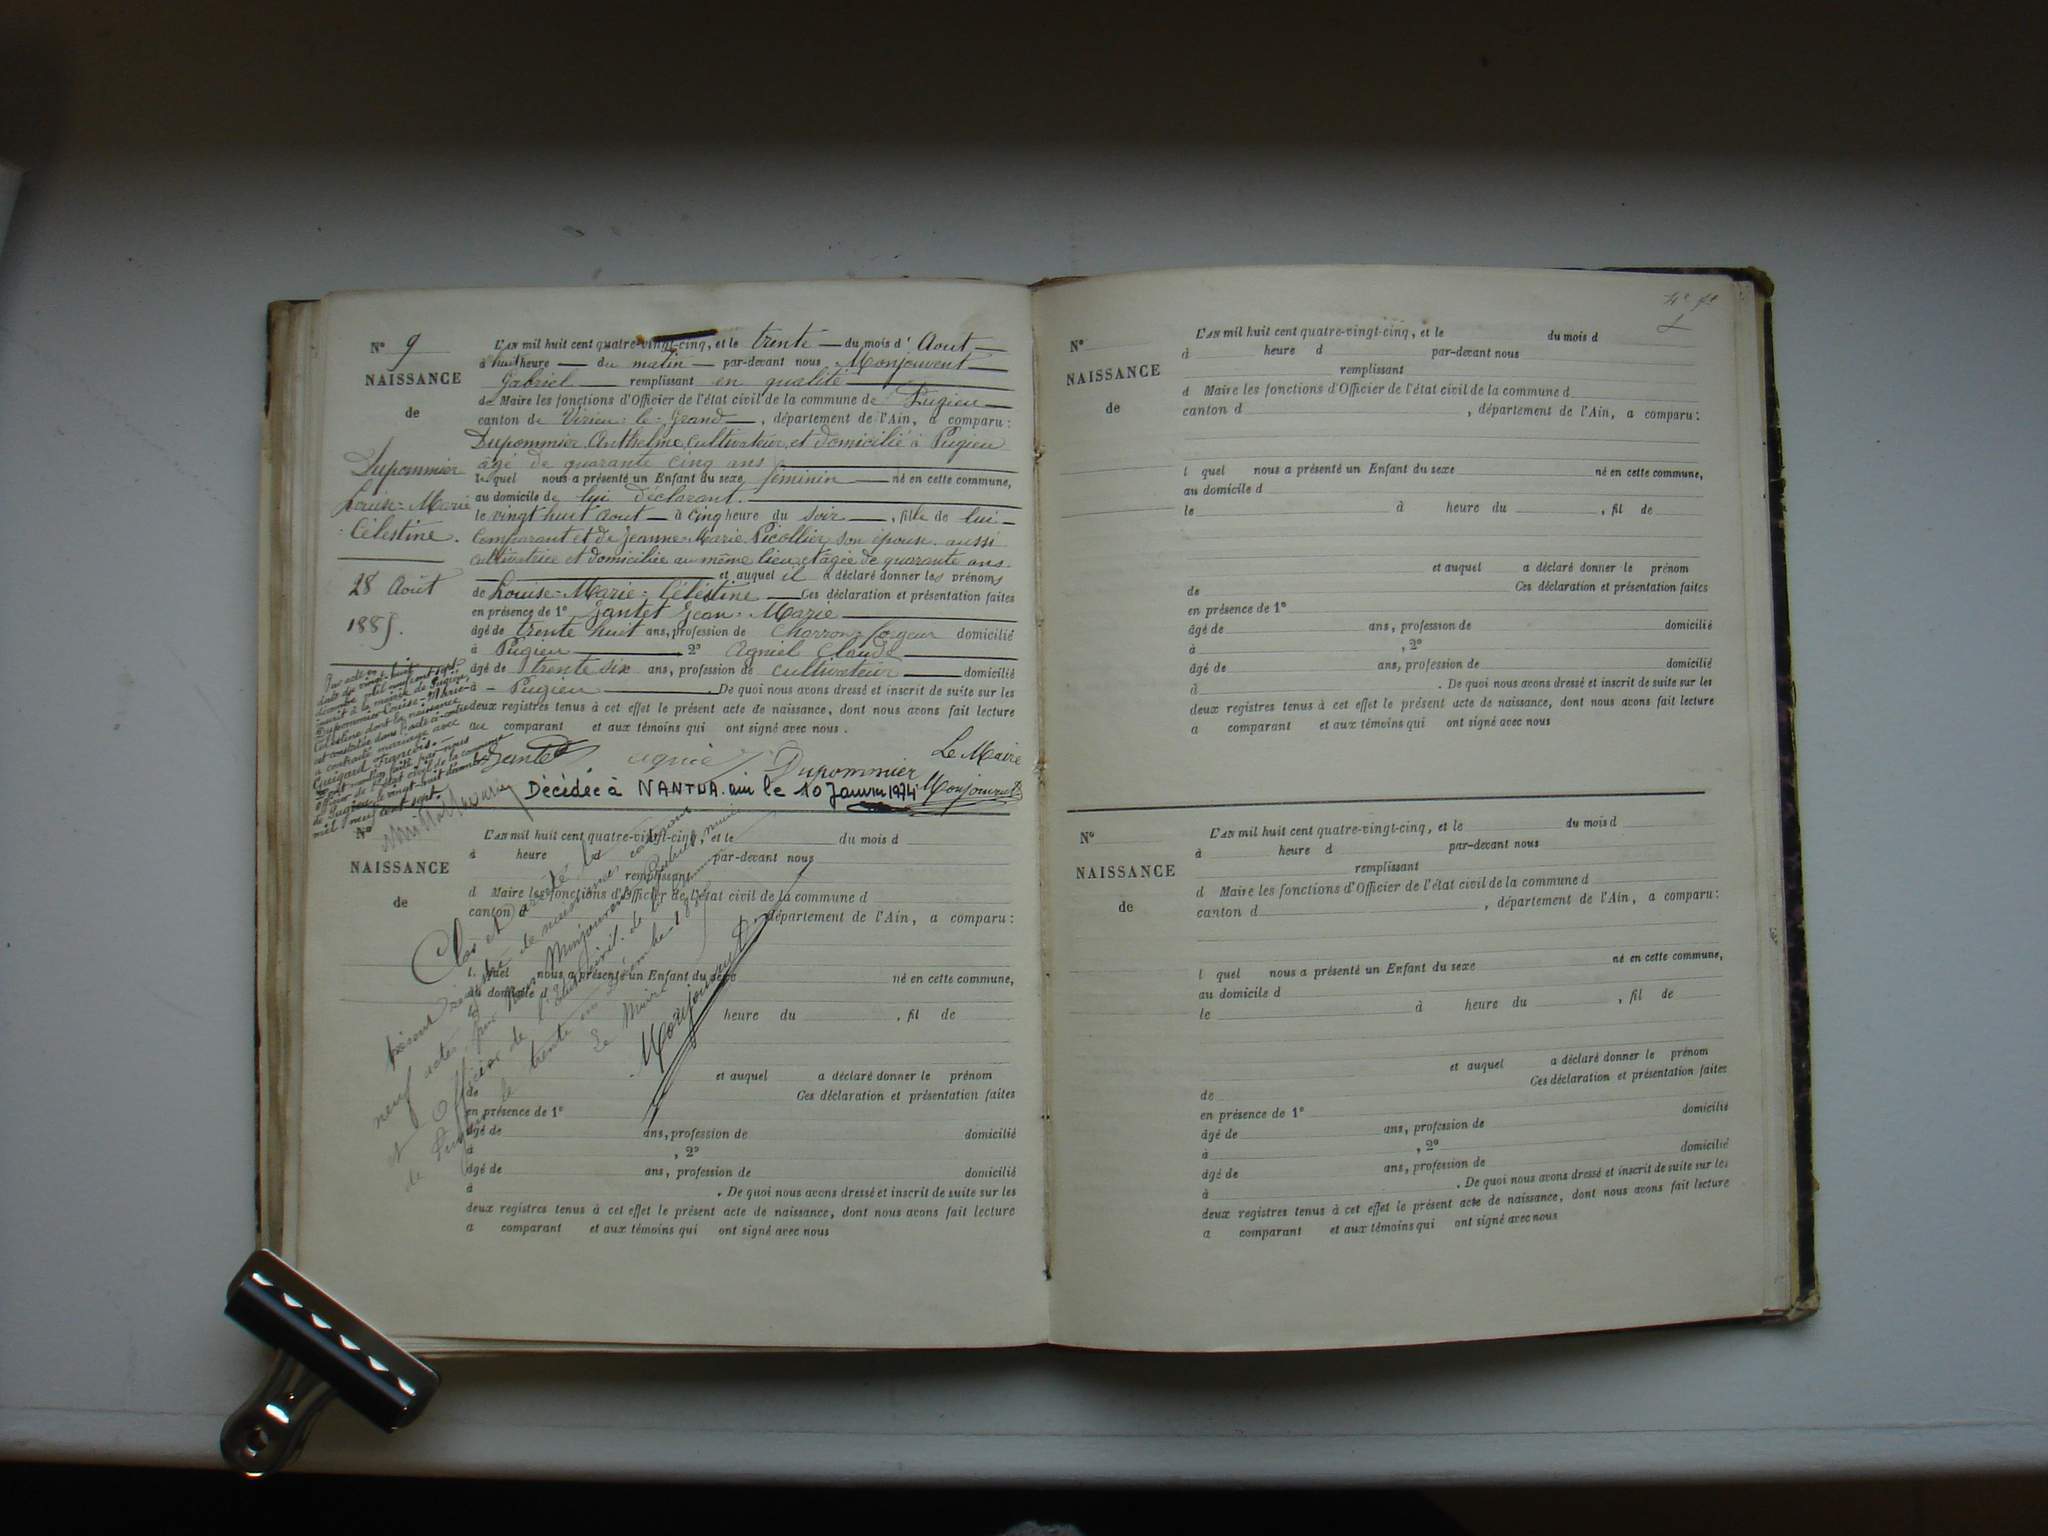 N° 9
NAISSANCE
de
Dupommier
Louise-Marie
Célestine.
28 Août
1885.
L'AN mil huit cent quatre-vingt-cinq, et le trente du mois d'Août
à huit heure du matin par-devant nous Monjouvent
Gabriel remplissant en qualité
de Maire les fonctions d'Officier de l'état civil de la commune de Pugieu
canton de Virieu-le-Grand, département de l'Ain, a comparu :
Dupommier Anthelme, cultivateur, et domicilié à Pugieu
âgé de quarante cinq ans
lequel nous a présenté un Enfant du sexe féminin né en cette commune,
au domicile de lui déclarant.
le vingt huit Août à cinq heure du soir, fille de lui
comparant et de Jeanne-Marie Picollier son épouse aussi
cultivatrice et domiciliée au même lieu et âgée de quarante ans.
et auquel il a déclaré donner les prénoms
de Louise-Marie-Célestine Ces déclaration et présentation faites
en présence de 1° Jantet Jean-Marie
âgé de trente huit ans, profession de Charron-forgeur domicilié
à Pugieu 2° Agniel Claude
âgé de trente six ans, profession de cultivateur domicilié
à Pugieu. De quoi nous avons dressé et inscrit de suite sur les
deux registres tenus à cet effet le présent acte de naissance, dont nous avons fait lecture
au comparant et aux témoins qui ont signé avec nous.
Par acte en
date du vingt-huit
décembre mil neuf cent sept
inscrit à la mairie de Pugieu,
Dupommier Louise-Marie-
Célestine dont la naissance
est constatée dans l'acte ci-contre
a contracté mariage avec
Guigard François.
Mention faite par nous
officier de l'état civil de la commune
de Pugieu, le vingt-huit décembre
mil neuf cent sept.
Jantet Agniel Dupommier Le Maire
Monjouvent
Décédée à NANTUA le 10 Janvier 1974
N°
NAISSANCE
de
L'AN mil huit cent quatre-vingt-cinq, et le du mois d
à heure d par-devant nous
remplissant
d Maire les fonctions d'Officier de l'état civil de la commune d
canton d département de l'Ain, a comparu :
l quel nous a présenté un Enfant du sexe né en cette commune,
au domicile d
le heure du , fil de
et auquel a déclaré donner le prénom
de Ces déclaration et présentation faites
en présence de 1°
âgé de ans, profession de domicilié
à , 2°
âgé de ans, profession de domicilié
à . De quoi nous avons dressé et inscrit de suite sur les
deux registres tenus à cet effet le présent acte de naissance, dont nous avons fait lecture
a comparant et aux témoins qui ont signé avec nous
Clos et arrêté le
présent registre de naissance, contenant
neuf actes, par nous Monjouvent Gabriel, maire
et Officier de l'état civil de la commune
de Pugieu le trente un Décembre 1885
Le Maire
Monjouvent
N°
NAISSANCE
de
L'AN mil huit cent quatre-vingt-cinq, et le du mois d
à heure d par-devant nous
remplissant
d Maire les fonctions d'Officier de l'état civil de la commune d
canton d , département de l'Ain, a comparu :
l quel nous a présenté un Enfant du sexe né en cette commune,
au domicile d
le à heure du , fil de
et auquel a déclaré donner le prénom
de Ces déclaration et présentation faites
en présence de 1°
âgé de ans, profession de domicilié
à , 2°
âgé de ans, profession de domicilié
à . De quoi nous avons dressé et inscrit de suite sur les
deux registres tenus à cet effet le présent acte de naissance, dont nous avons fait lecture
a comparant et aux témoins qui ont signé avec nous
N°
NAISSANCE
de
L'AN mil huit cent quatre-vingt-cinq, et le du mois d
à heure d par-devant nous
remplissant
d Maire les fonctions d'Officier de l'état civil de la commune d
canton d , département de l'Ain, a comparu :
l quel nous a présenté un Enfant du sexe né en cette commune,
au domicile d
le à heure du , fil de
et auquel a déclaré donner le prénom
de Ces déclaration et présentation faites
en présence de 1°
âgé de ans, profession de domicilié
à , 2°
âgé de ans, profession de domicilié
à . De quoi nous avons dressé et inscrit de suite sur les
deux registres tenus à cet effet le présent acte de naissance, dont nous avons fait lecture
a comparant et aux témoins qui ont signé avec nous